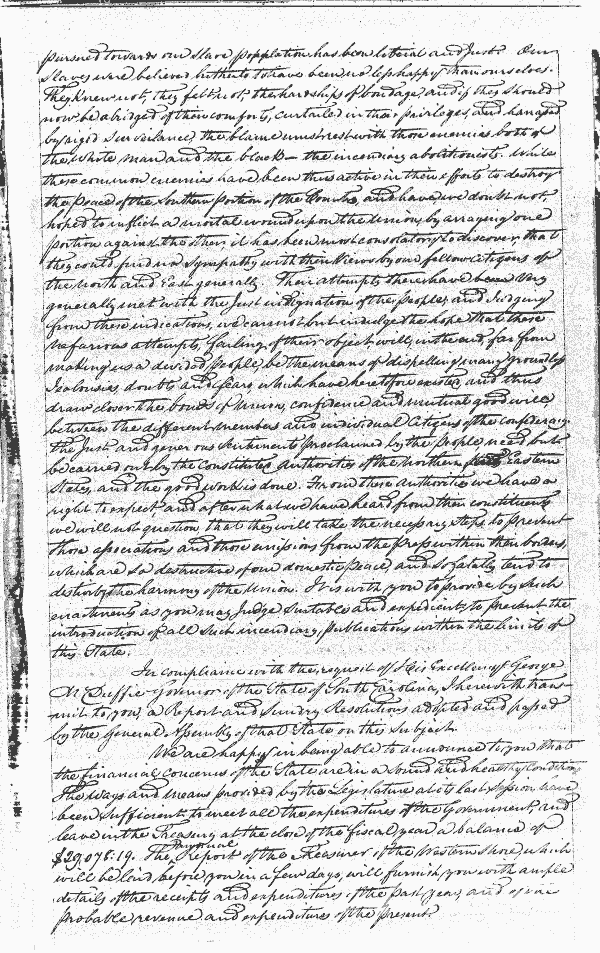 pursued towards our slave popplation has been liberal and just Our
Slaves were believed hitherto to have been no less happy than ourselves.
They knew not, they felt not, the hardships of bondage, and if they should
now be abridged of their comforts, curtailed in their privileges, and harrassed
by rigid Surveilance, the blame must rest with those enemies both of
the white man and the black — the incendiary abolitionists. While
these common enemies have been thus active in their efforts to destroy
the peace of the Southern portion of the Country, and have we doubt not,
hoped to inflict a mortal wound upon the Union, by arraying one
portion against the other, it has been most consolatory to discover, that
they could find no Sympathy with their views by our fellow citizens of
the North and East generally. Their attempts there have been very
generally met with the just indignation of the people, and Judging
from these indications, we cannot but indulge the hope that these
nefarious attempts, failing of their object will, in the end, far from
making us a divided people, be the means of dispelling many groundless
Jealousies, doubts and fears, which have heretofore existed, and thus
draw closer the bonds of Union, confidence and mutual good will
between the different members and individual Citizens of the confederacy.
The Just and generous Sentiments proclaimed by the people need but
be carried out by the Constituted Authorities of the Northern and Eastern
States, and the good work is done. From these Authorities we have a
right to expect and after what we have heard from their constituents
we will not question, that they will take the necessary steps to prevent
those associations and those emissions from the Press within their borders,
which are so destructive of our domestic peace, and so fatally tend to
disturb the harmony of the Union. It is with you to provide by such
enactments as you may Judge Suitable and expedient, to prevent the
introduction of all Such incendiary publications within the limits of
this State.
In compliance with the request of His Excellency George
McDuffie Govornor of the State of South Carolina, I herewith trans-
mit to you, a Report and Sundry Resolutions adopted and passed
by the General Assembly of that State on this Subject.
We are happy in being able to announce to you that
the financial concerns of the State are in a sound and healthy condition.
The ways and means provided by the Legislature at its last session have
been Sufficient to meet all the expenditures of the Government, and
leave in the Treasury at the close of the fiscal year a balance of
$29,078.19. The Annual Report of the Treasurer of the Western Shore, which
will be laid before you in a few days, will furnish you with ample
details of the receipts and expenditures of the past year, and of the
probable revenue and expenditures of the present.